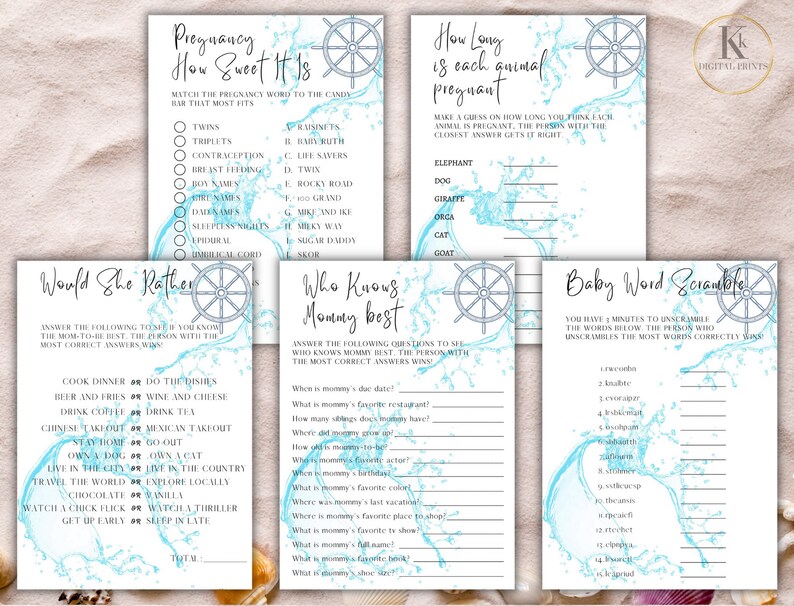 Pregnancy
How Sweet It Is
MATCH THE PREGNANCY WORD TO THE CANDY
BAR THAT MOST FITS
TWINS A. RAISINETS
TRIPLETS B. BABY RUTH
CONTRACEPTION C. LIFE SAVERS
BREAST FEEDING D. TWIX
BOY NAMES E. ROCKY ROAD
F. 100 GRAND
DAD NAMES G. MIKE AND IKE
SLEEPLESS NIGHTS H. MILKY WAY
EPIDURAL I. SUGAR DADDY
UMBILICAL CORD J. SKOR
How Long
is each animal
pregnant
MAKE A GUESS ON HOW LONG YOU THINK EACH
ANIMAL IS PREGNANT, THE PERSON WITH THE
CLOSEST ANSWER GETS IT RIGHT.
ELEPHANT
DOG
GIRAFFE
ORCA
CAT
GOAT
Kk
DIGITAL PRINTS
Would She Rather
ANSWER THE FOLLOWING TO SEE IF YOU KNOW
THE MOM-TO-BE BEST. THE PERSON WITH THE
MOST CORRECT ANSWERS WINS!
COOK DINNER OR DO THE DISHES
BEER AND FRIES OR WINE AND CHEESE
DRINK COFFEE OR DRINK TEA
CHINESE TAKEOUT OR MEXICAN TAKEOUT
STAY HOME OR GO OUT
OWN A DOG OR OWN A CAT
LIVE IN THE CITY OR LIVE IN THE COUNTRY
TRAVEL THE WORLD OR EXPLORE LOCALLY
CHOCOLATE OR VANILLA
WATCH A CHICK FLICK OR WATCH A THRILLER
GET UP EARLY OR SLEEP IN LATE
TOTAL:
Who Knows
Mommy best
ANSWER THE FOLLOWING QUESTIONS TO SEE
WHO KNOWS MOMMY BEST. THE PERSON WITH
THE MOST CORRECT ANSWERS WINS!
When is mommy's due date?
What is mommy's favorite restaurant?
How many siblings does mommy have?
Where did mommy grow up?
How old is mommy-to-be?
Who is mommy's favorite actor?
When is mommy's birthday?
What is mommy's favorite color?
Where was mommy's last vacation?
Where is mommy's favorite place to shop?
What is mommy's favorite tv show?
What is mommy's full name?
What is mommy's favorite book?
What is mommy's shoe size?
Baby Word Scramble
YOU HAVE 3 MINUTES TO UNSCRAMBLE
THE WORDS BELOW. THE PERSON WHO
UNSCRAMBLES THE MOST WORDS CORRECTLY WINS!
1.rweonbn
2.knalbte
3.evoraipzr
4.
5.
6.
7.
8.stohmer
9.
10.tbeansis
11.rpeaicfi
12.rteehet
13.
14.
15.leapriud